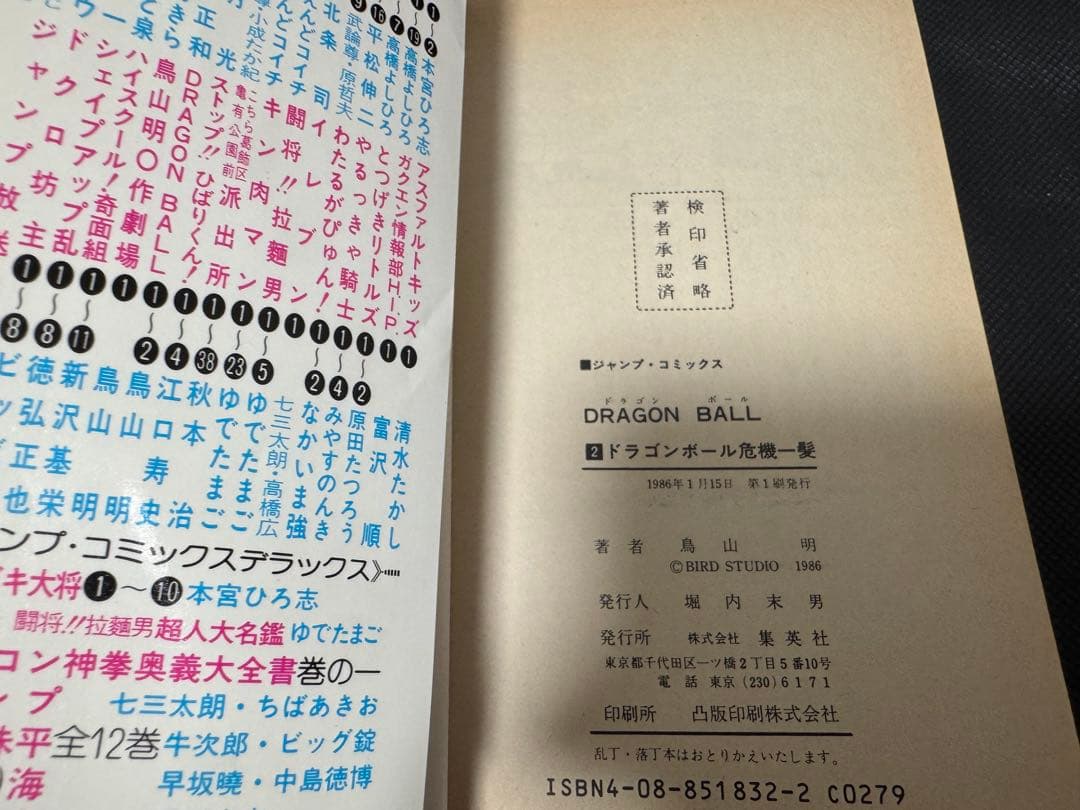 ❶〜❷本宮ひろ志
⓳高橋よしひろ
❼高橋よしひろ
⓰平松伸二
❾武論尊・原哲夫
北条司
えんどコイチ
えんどコイチ
小成たか紀
アスファルトキッズ❶清水たかし
ガクエン情報部H.I.P.❶富沢順
とつげきリトルズ❶〜❷原田たつろう
やるっきゃ騎士❶〜❹みやすのんき
わたるがぴゅん!❶〜❷なかいま強
イレブン❶七三太郎・高橋広
闘将!!拉麵男❶〜❺ゆでたまご
キン肉マン❶〜㉓ゆでたまご
こちら葛飾区亀有公園前派出所❶〜㊳秋本治
ストップ!!ひばりくん!❶〜❹江口寿史
DRAGON BALL❶〜❷鳥山明
鳥山明○作劇場❶鳥山明
ハイスクール!奇面組❶〜⓫新沢基栄
シェイプアップ乱❶〜❽徳弘正也
ンプ・コミックスデラックス》
キ大将❶〜❿本宮ひろ志
闘将!!拉麵男超人大名鑑 ゆでたまご
コン神拳奥義大全書巻の一
ンプ 七三太郎・ちばあきお
平全12巻 牛次郎・ビッグ錠
海 早坂曉・中島徳博
検印省略
著者承認済
■ジャンプ・コミックス
ドラゴン ボール
DRAGON BALL
2 ドラゴンボール危機一髪
1986年1月15日 第1刷発行
著者 鳥山 明
©BIRD STUDIO 1986
発行人 堀内末男
発行所 株式会社 集英社
東京都千代田区一ツ橋2丁目5番10号
電話 東京(230)6171
印刷所 凸版印刷株式会社
乱丁・落丁本はおとりかえいたします。
ISBN4-08-851832-2 C0279